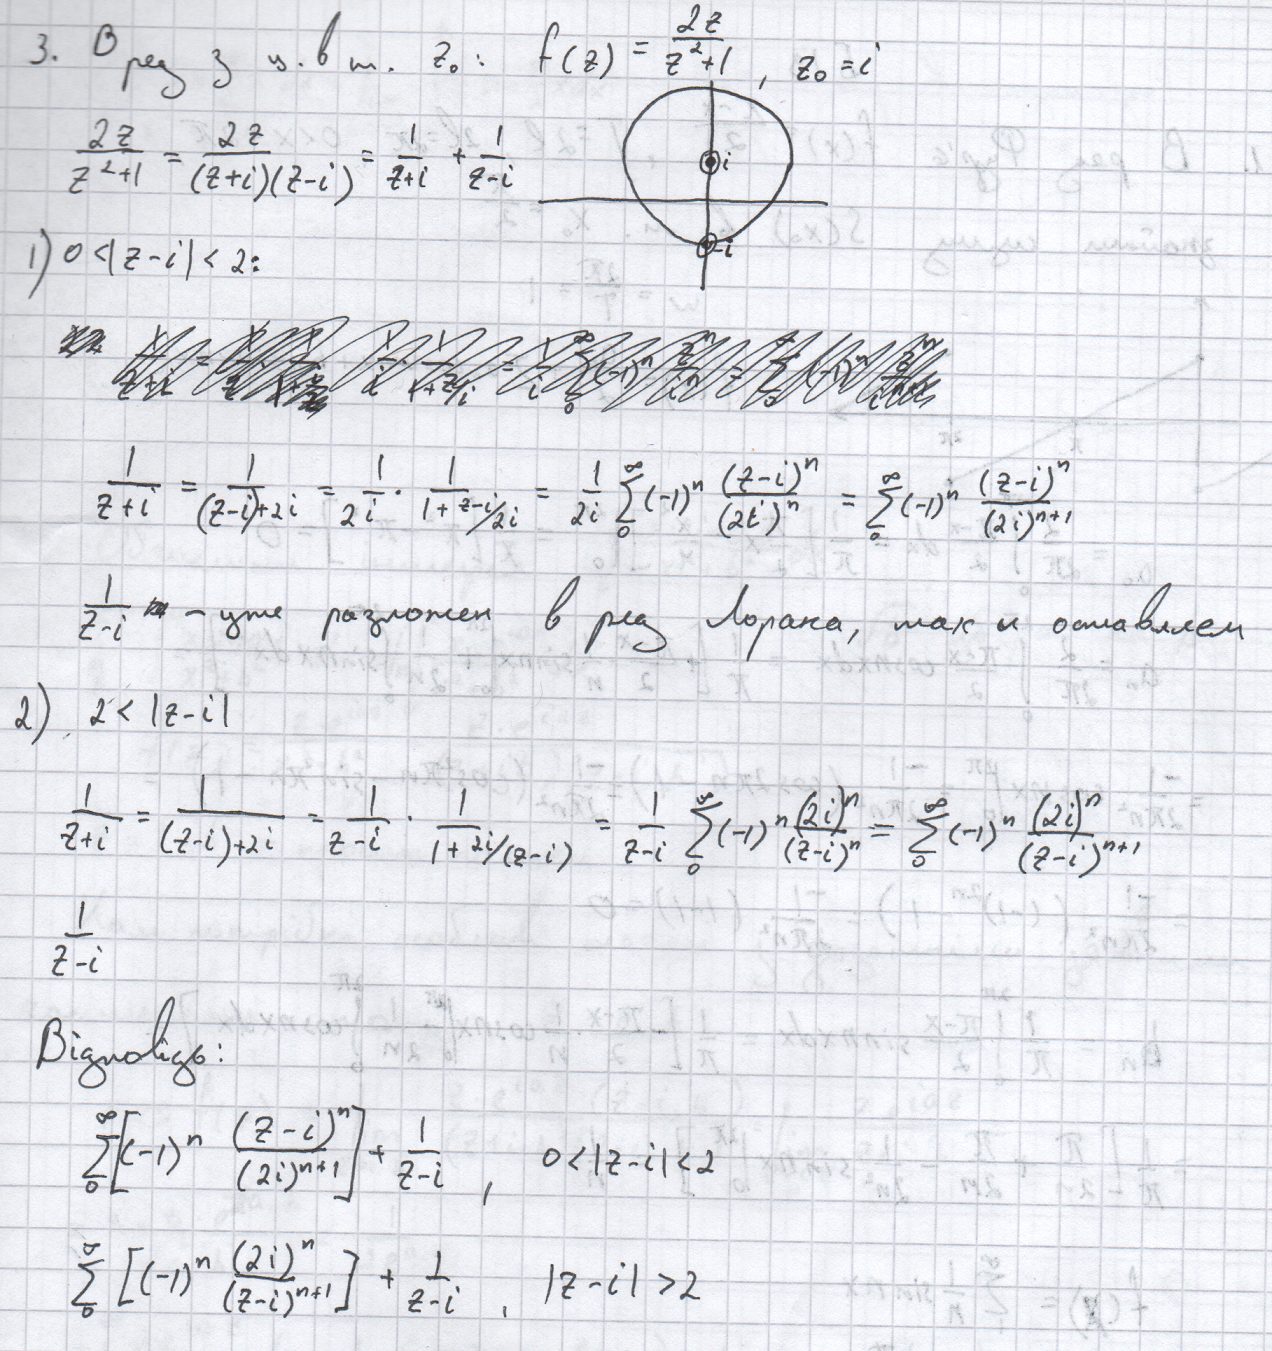 3. В ряд з ц. в т. z₀: f(z) = 2z/(z²+1), z₀ = i
2z/(z²+1) = 2z/((z+i)(z-i)) = 1/(z+i) + 1/(z-i)
i
-i
1) 0<|z-i|< 2:
1/(z+i) = 1/((z-i)+2i) = 1/2i · 1/(1+ z-i/2i) = 1/2i ∑₀^∞ (-1)ⁿ (z-i)ⁿ/(2i)ⁿ = ∑₀^∞ (-1)ⁿ (z-i)ⁿ/(2i)ⁿ⁺¹
1/(z-i) - уже разложен в ряд Лорана, так и оставляем
2) 2< |z-i|
1/(z+i) = 1/((z-i)+2i) = 1/(z-i) · 1/(1+ 2i/(z-i)) = 1/(z-i) ∑₀^∞ (-1)ⁿ (2i)ⁿ/(z-i)ⁿ = ∑₀^∞ (-1)ⁿ (2i)ⁿ/(z-i)ⁿ⁺¹
1/(z-i)
Відповідь:
∑₀^∞ [(-1)ⁿ (z-i)ⁿ/(2i)ⁿ⁺¹] + 1/(z-i), 0<|z-i|<2
∑₀^∞ [(-1)ⁿ (2i)ⁿ/(z-i)ⁿ⁺¹] + 1/(z-i), |z-i|>2